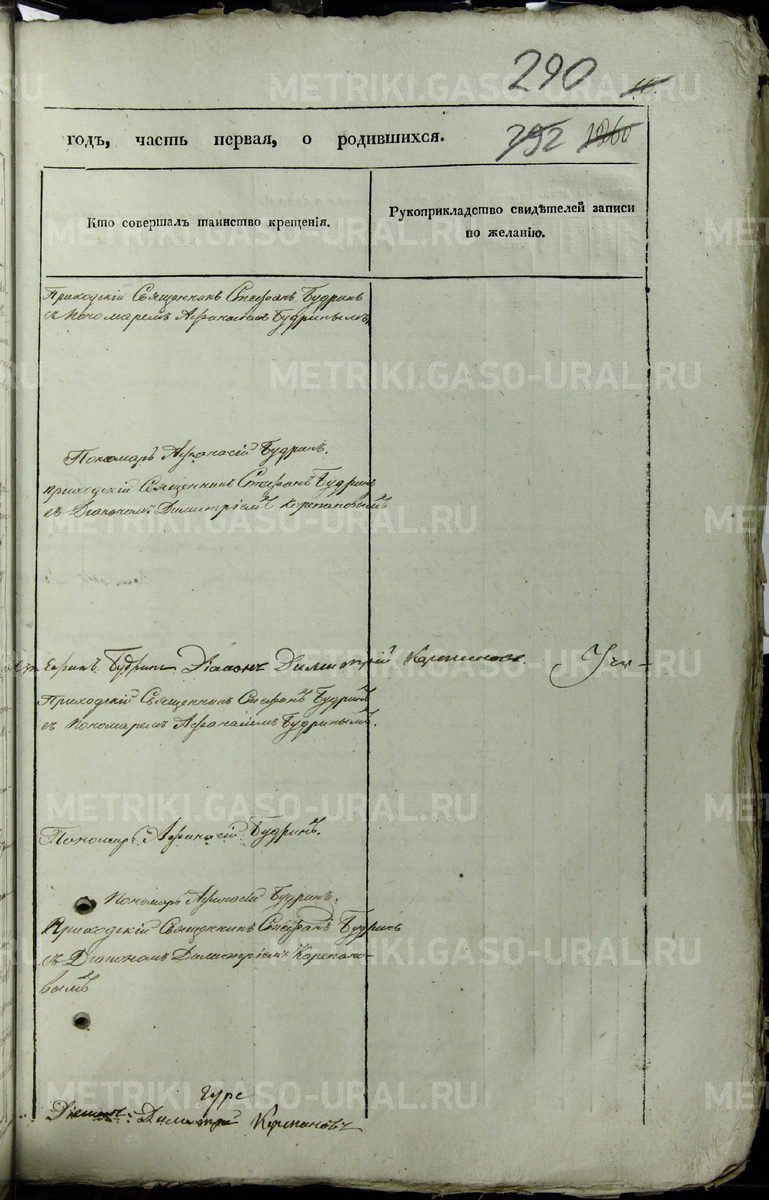 290
годъ, часть первая, о родившихся.
792 1260
Кто совершалъ таинство крещенія.
Рукоприкладство свидѣтелей записи
по желанію.
Приходскій Священникъ Стефанъ Будринъ
съ Пономаремъ Афанасіемъ Будринымъ
Пономарь Афанасій Будринъ.
Приходскій Священникъ Стефанъ Будринъ
съ Діакономъ Димитріемъ Корепановымъ
Будринъ Діаконъ Димитрій Корепановъ.
Приходскій Священникъ Стефанъ Будринъ
съ Пономаремъ Афанасіемъ Будринымъ.
Пономарь Афанасій Будринъ.
Пономарь Афанасій Будринъ.
Приходскій Священникъ Стефанъ Будринъ
съ Діакономъ Димитріемъ Корепано-
вымъ
Діаконъ Димитрій Корепановъ
METRIKI.GASO-URAL.RU